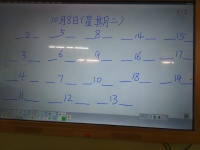 10月8日(星期二)
__2__ __5__ __8__ __14__ __15__
__3__ __6__ __9__ __16__ __17__
__4__ __7__ __10__ __18__ __19__
__11__ __12__ __13__